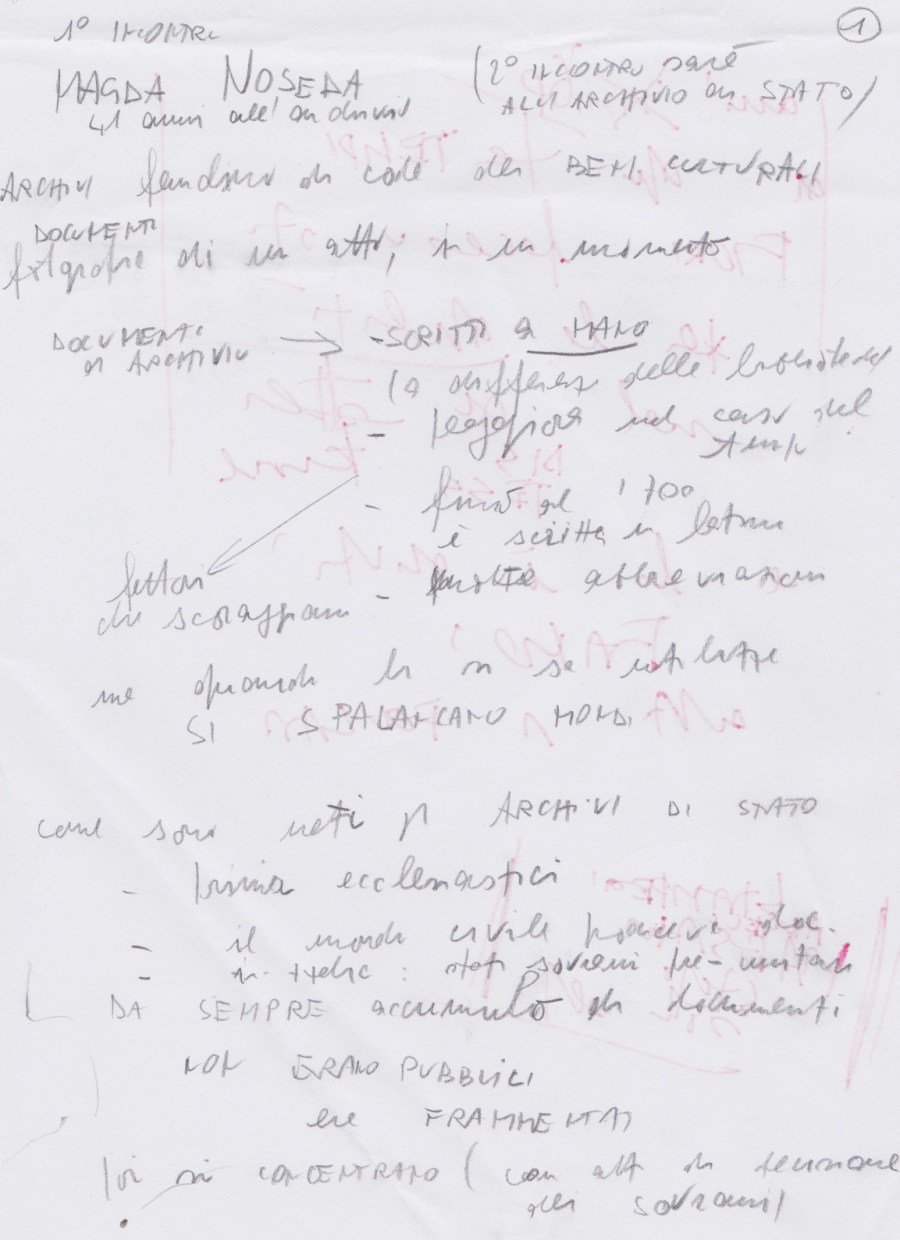 1
1° INCONTRO
MAGDA NOSEDA
41 anni all'archivio
(2° INCONTRO sarà
ALL'ARCHIVIO di STATO)
ARCHIVI fanalino di coda dei BENI CULTURALI
DOCUMENTI
fotografie di un atto, di un momento
DOCUMENTI
di ARCHIVIO
- SCRITTI a MANO
(a differenza delle biblioteche
- peggiora nel corso del
tempo
- fino al '700
è scritta in latino
- molte abbreviazioni
fattori
che scoraggiano
ma quando li si sa
SI SPALANCANO MONDI
come sono nati gli ARCHIVI DI STATO
- prima ecclesiastici
- il mondo civile produceva doc.
- in Italia: stati sovrani pre-unitari
DA SEMPRE accumulo di documenti
NON ERANO PUBBLICI
ed FRAMMENTATI
poi si CONCENTRANO (con atti di decisione
dei sovrani)